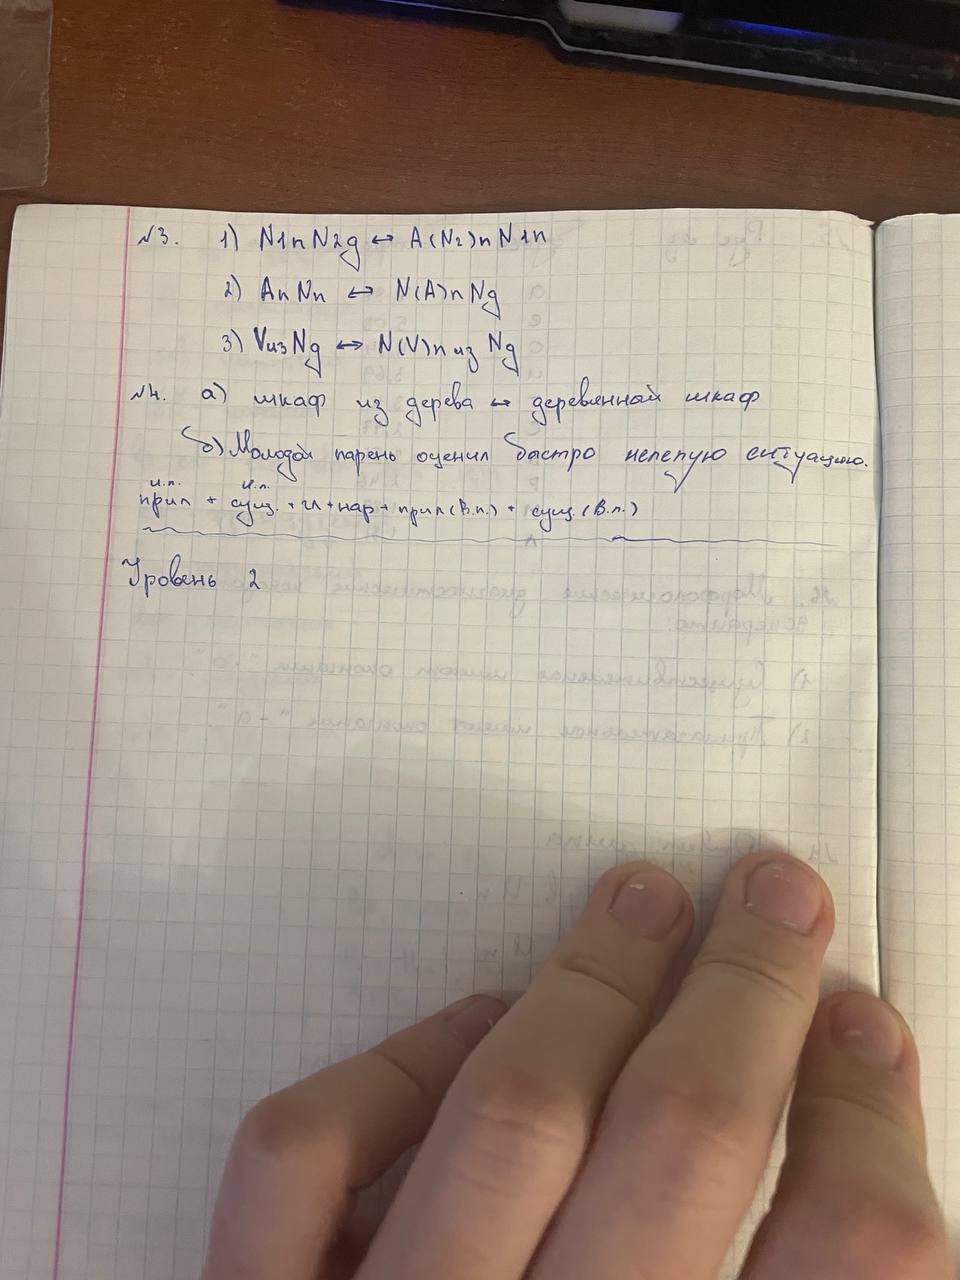 №3. 1) N1n N2g ↔ A(N2)n N1n
2) An Nn ↔ N(A)n Ng
3) Vиз Ng ↔ N(V)n из Ng
№4. а) шкаф из дерева ↔ деревянной шкаф
б) Молодой парень оценил быстро нелепую ситуацию.
и.п. и.п.
прил + сущ. + гл + нар + прил (В.п.) + сущ. (В.п.)
Уровень 2